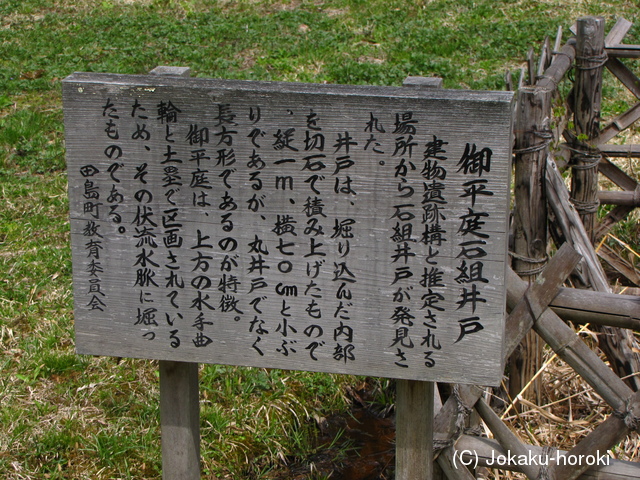 御平庭石組井戸
建物遺跡構と推定される
場所から石組井戸が発見さ
れた。
井戸は、堀り込んだ内部
を切石で積み上げたもので
、縦一m、横七〇㎝と小ぶ
りであるが、丸井戸でなく
長方形であるのが特徴。
御平庭は、上方の水手曲
輪と土塁で区画されている
ため、その伏流水脈に堀っ
たものである。
田島町教育委員会
(C) Jokaku-horoki